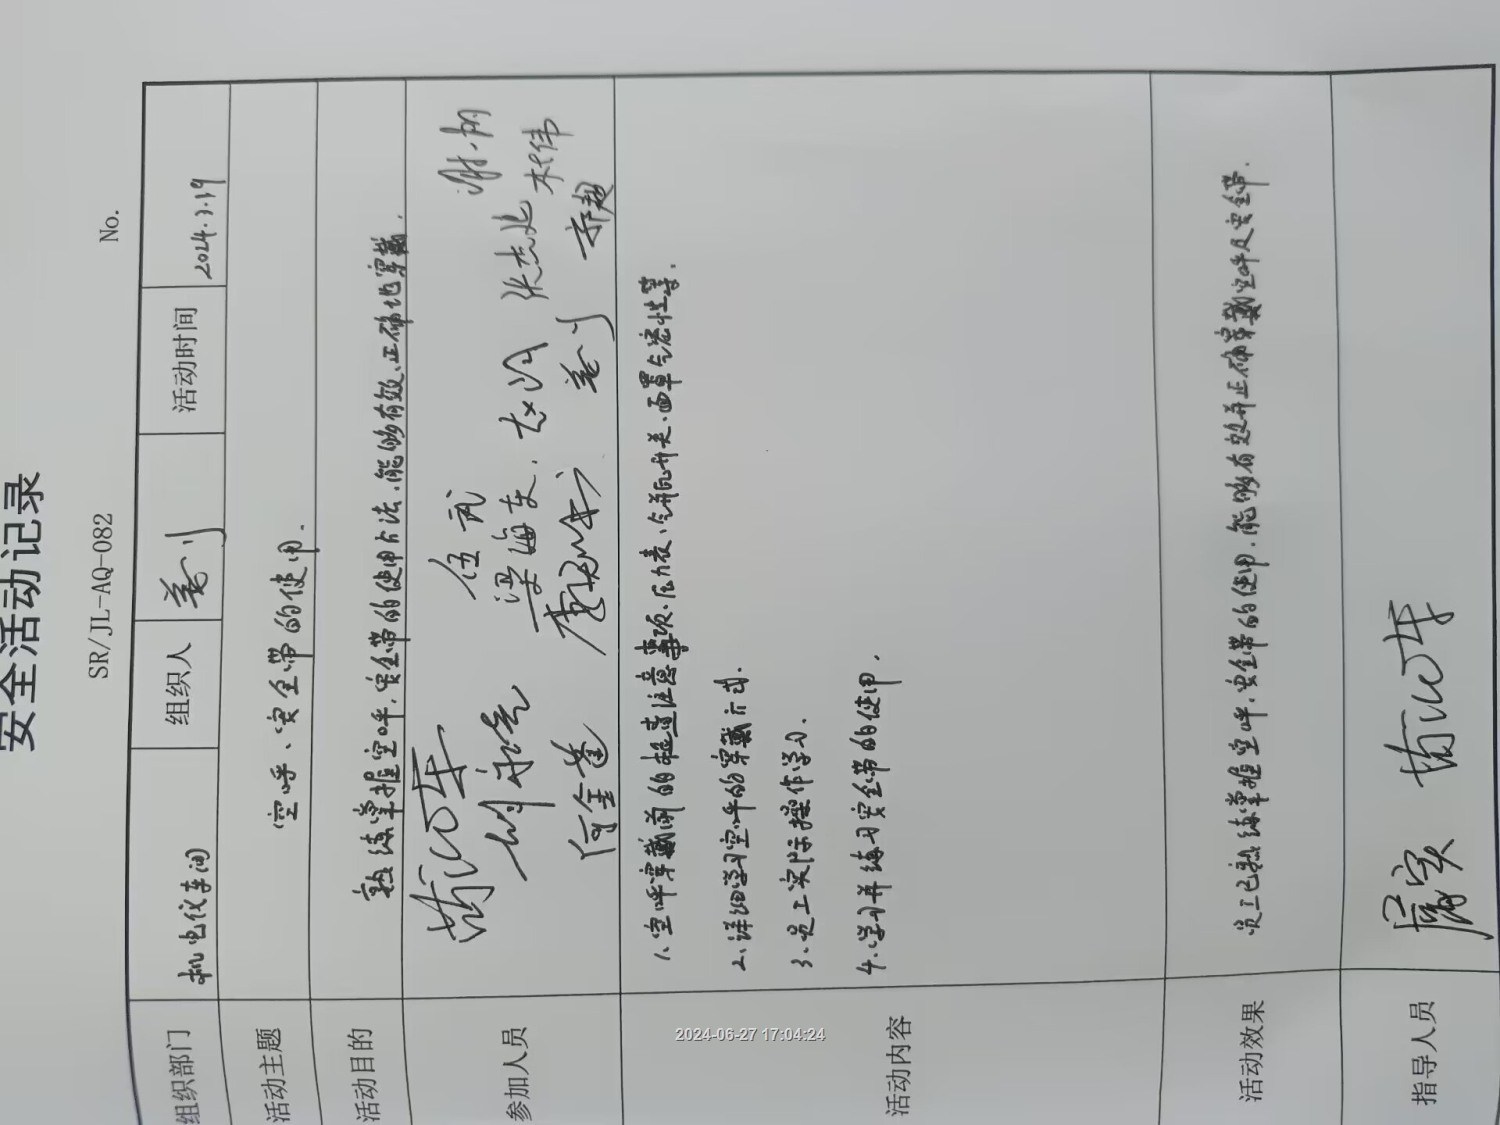 安全活动记录
SR/JL-AQ-082 No.
组织部门 机电仪车间 组织人 活动时间 2024.3.19
活动主题 空呼、安全带的使用.
活动目的 熟练掌握空呼,安全带的使用方法,能够有效、正确地穿戴.
参加人员 伍武
梁海东 张杰 林伟
何金莲 乔超
活动内容
1、空呼穿戴前的检查注意事项、压力表、气瓶开关、面罩气密性等.
2、详细学习空呼的穿戴方式.
3、员工实际操作学习.
4、学习并练习安全带的使用.
活动效果 员工已熟练掌握空呼,安全带的使用,能够有效并正确穿戴空呼及安全带.
指导人员
2024-06-27 17:04:24